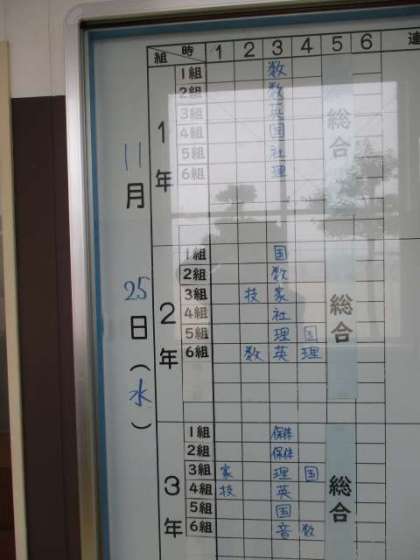 組 時 1 2 3 4 5 6 連
11月25日(水)
1年 総合
1組 数
2組 数
3組 英
4組 国
5組 社
6組 理
2年 総合
1組 国
2組 数
3組 技 家
4組 社
5組 理 国
6組 数 英 理
3年 総合
1組 保体
2組 保体
3組 家 理 国
4組 技 英
5組 国
6組 音 数